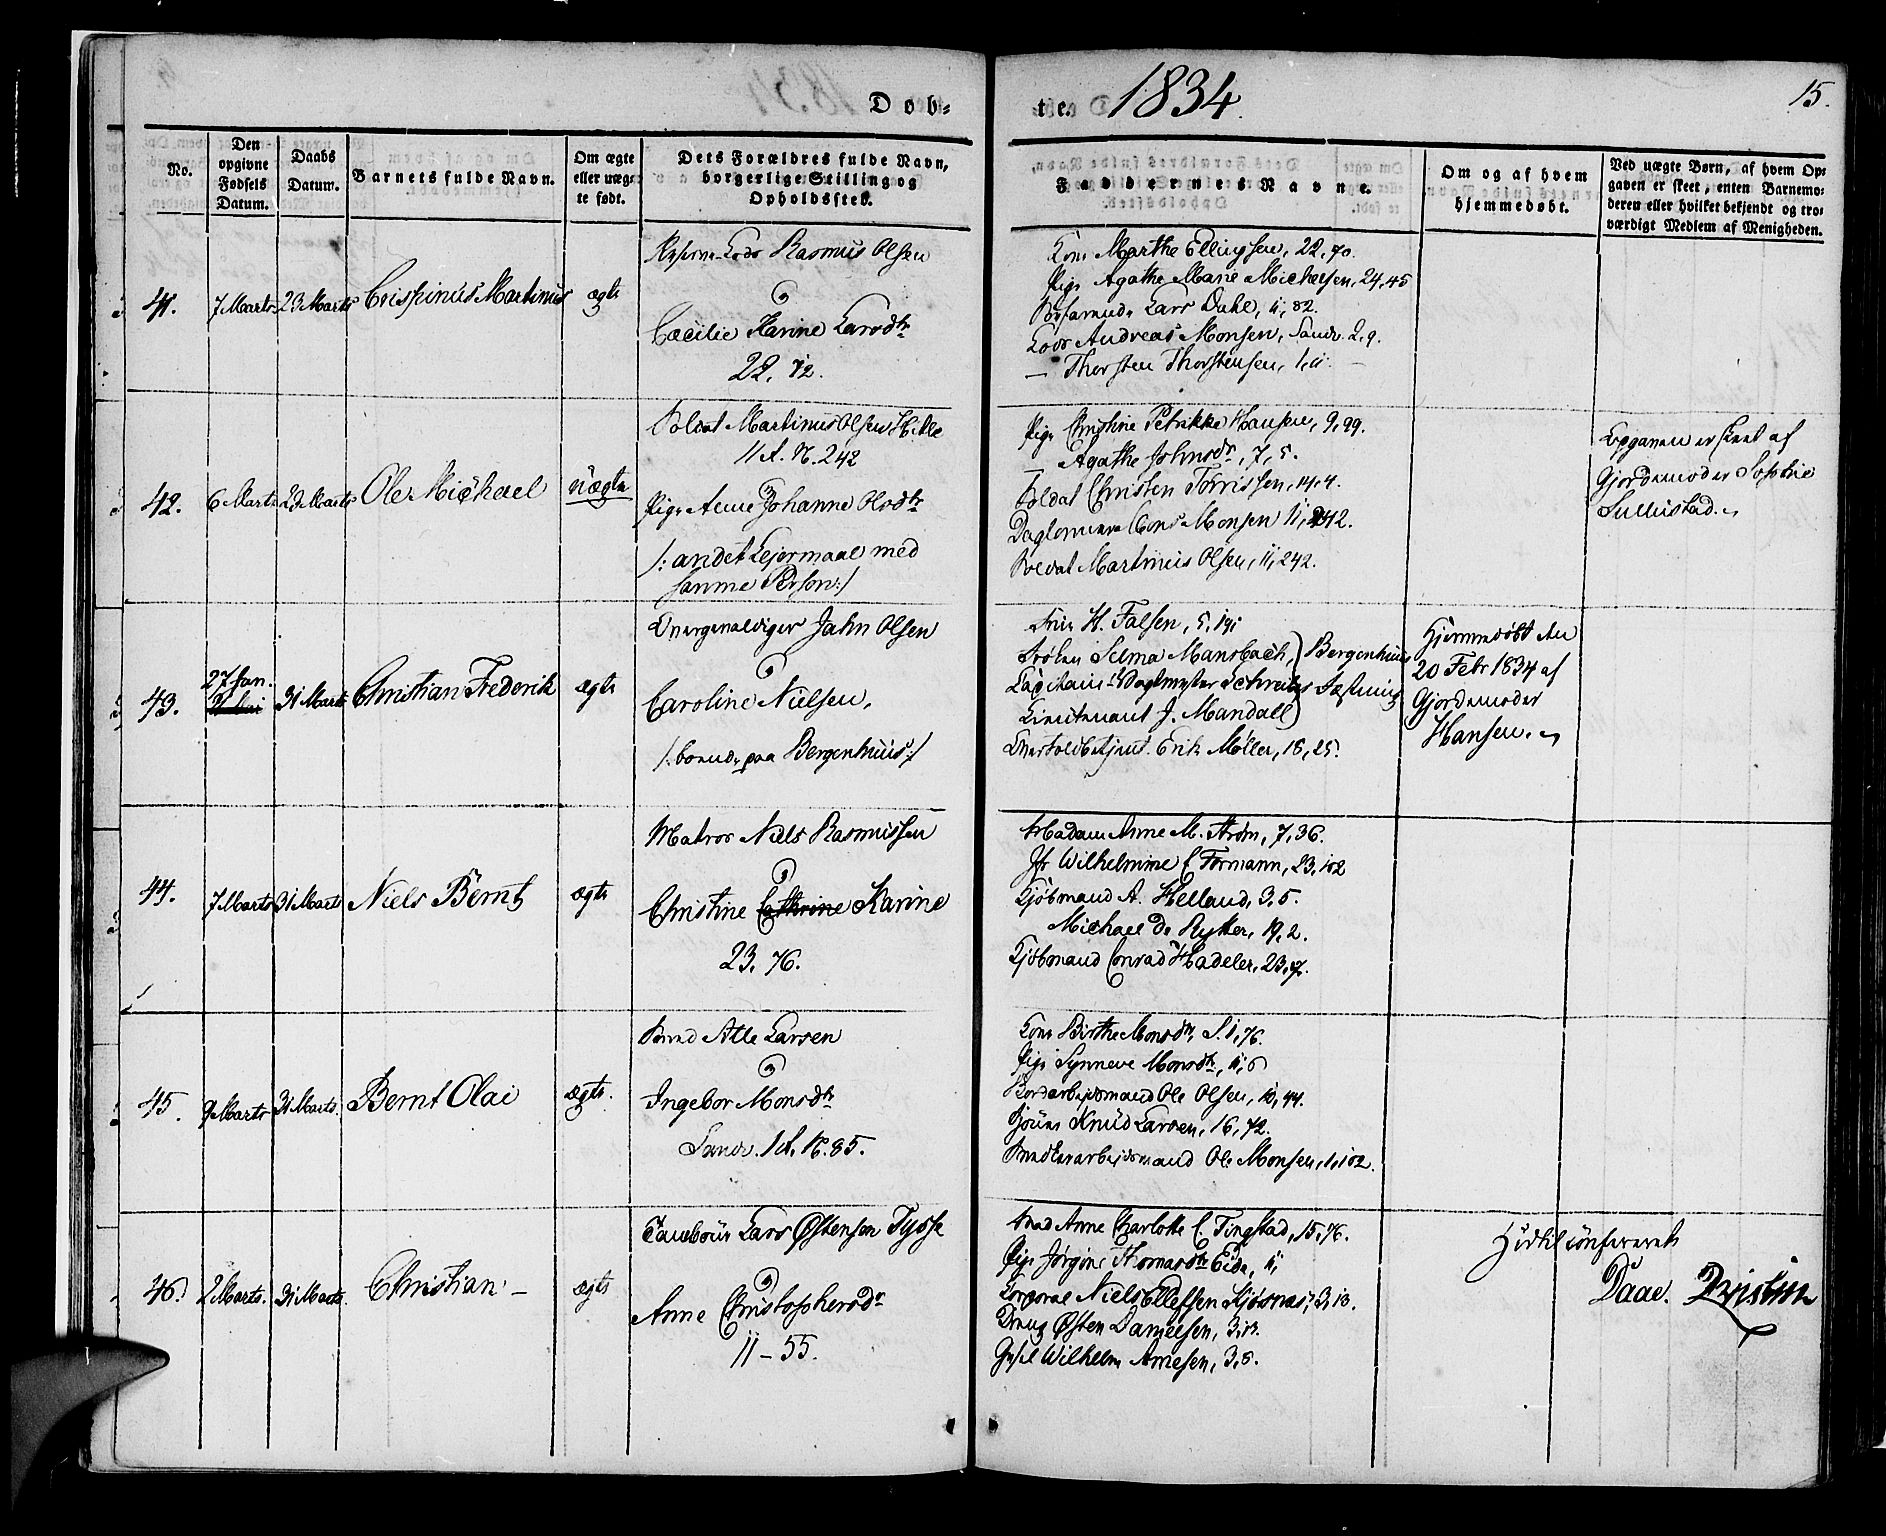 Døb-
te. 1834.
15.
No.
Den opgivne Fødsels Datum.
Daabs Datum.
Barnets fulde Navn.
Om ægte eller uæg-
te født.
Dets Forældres fulde Navn,
borgerlige Stilling og
Opholdssted.
Faddernes Navne.
Om og af hvem
hjemmedøbt.
Ved uægte Børn, af hvem Op-
gaven er skeet, enten Barnemo-
deren eller hvilket bekjendt og tro-
værdigt Medlem af Menigheden.
41.
7 Marts
23 Marts
Crispinus Martinus
ægte
Rasmus Olsen
Cæcilie Karine Larsdtr
22, 72.
Kone Marthe Ellingsen, 22, 70.
Pige Agathe Marie Michelsen, 24, 45
Lars Dahl, 11, 82.
Andreas Monsen, Sandv. 2, 9.
— Thorsten Thorstensen, 1, 11. —
42.
6 Marts
23 Marts
Ole Michael
uægte
Soldat Martinus Olsen Hille
11 A. N. 242
Pige Anne Johanne Olsdtr
/: andet Lejermaal med
samme Person :/
Pige Christine Petrikke Hansen, 9, 99.
— Agathe Johnsdr, 7, 5.
Soldat Christen Torrissen, 14, 4.
Monsen 11, 242.
Soldat Martinus Olsen, 11, 242.
Opgaven er skeet af
Gjordemoder Sophie
43.
27 Jan.
31 Marts
Christian Frederik
ægte
Jahn Olsen
Caroline Nielsen,
/: boende paa Bergenhuus :/
Frue H. Falsen, 5, 191
Frøken Selma Mansbach,
Capitain
Lieutenant J. Mandall
Bergenhuus
Fæstning
Erik Møller, 18, 25.
Hjemmedøbt den
20 Febr 1834 af
Gjordemoder
Hansen.
44.
7 Marts
31 Marts
Niels Bernt
ægte
Matros Niels Rasmussen
Christine Cathrine Karine
23, 76.
Madam Anne M. Strøm, 7, 36.
Jfr Wilhelmine C Formann, 23, 102
Kjøbmand A. Helland, 3, 5.
Michael D. Rytter, 19, 2.
Kjøbmand Conrad Hadeler, 23, 17.
45.
9 Marts
31 Marts
Bernt Olai
ægte
Atle Larsen
Ingebor Monsdtr
Sandv. 1 A. N. 85.
Kone Birthe Monsdtr, S. 1, 76.
Pige Synneve Monsdtr, 11, 6
Ole Olsen, 10, 44.
Knud Larsen, 16, 72.
Ole Monsen, 1, 102.
46.
2 Marts.
31 Marts.
Christian —
ægte
Tambour Lars Østensen Tysse
Anne Christophersdr
11 - 55.
Anne Charlotte C. Tingstad, 15, 76.
Pige Jørgine Thomasdtr Eide, 11
Corporal Niels Ellefsen Kjøsnæs, 3, 13.
Dreng Østen Danielsen, 3, 13.
Wilhelm Arnesen, 3, 5.
Hidtil confereret
Daae.